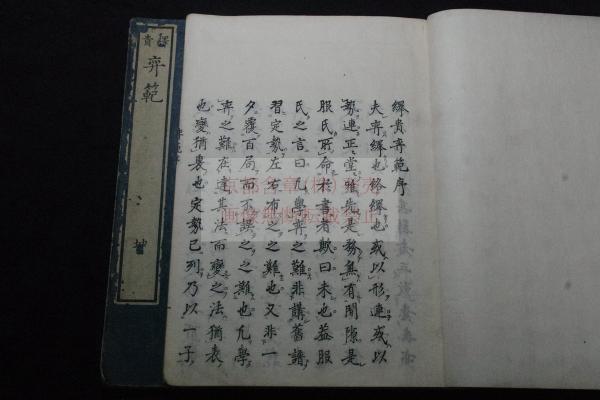 繹貴弈範序
夫弈繹也絡繹也或以形連或以
勢連正堂雖先是務無有閒隙是
服氏所命於書者歟曰未也蓋服
氏之言曰凡學弈之難非講舊譜
習定勢左右布之之難也又非一
夕覆百局而不誤之之難也凡學
弈之難在達其法而變之法猶表
也變猶裏也定勢已列乃以一子
繹貴
弈範
坤